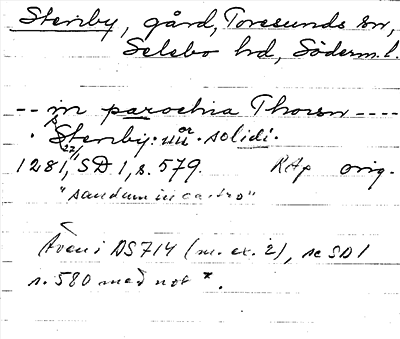 Stenby, gård, Toresunds sn,
Selebo hd, Söderm.l.
-- in parochia Thorsn ----
Stenby: iiii or solidi.
1281 22/1, SD 1, s. 579. RAp orig.
"sandum in castro"
Även i DS 714 (m. ex. 2), se SD 1
s. 580 med not *.